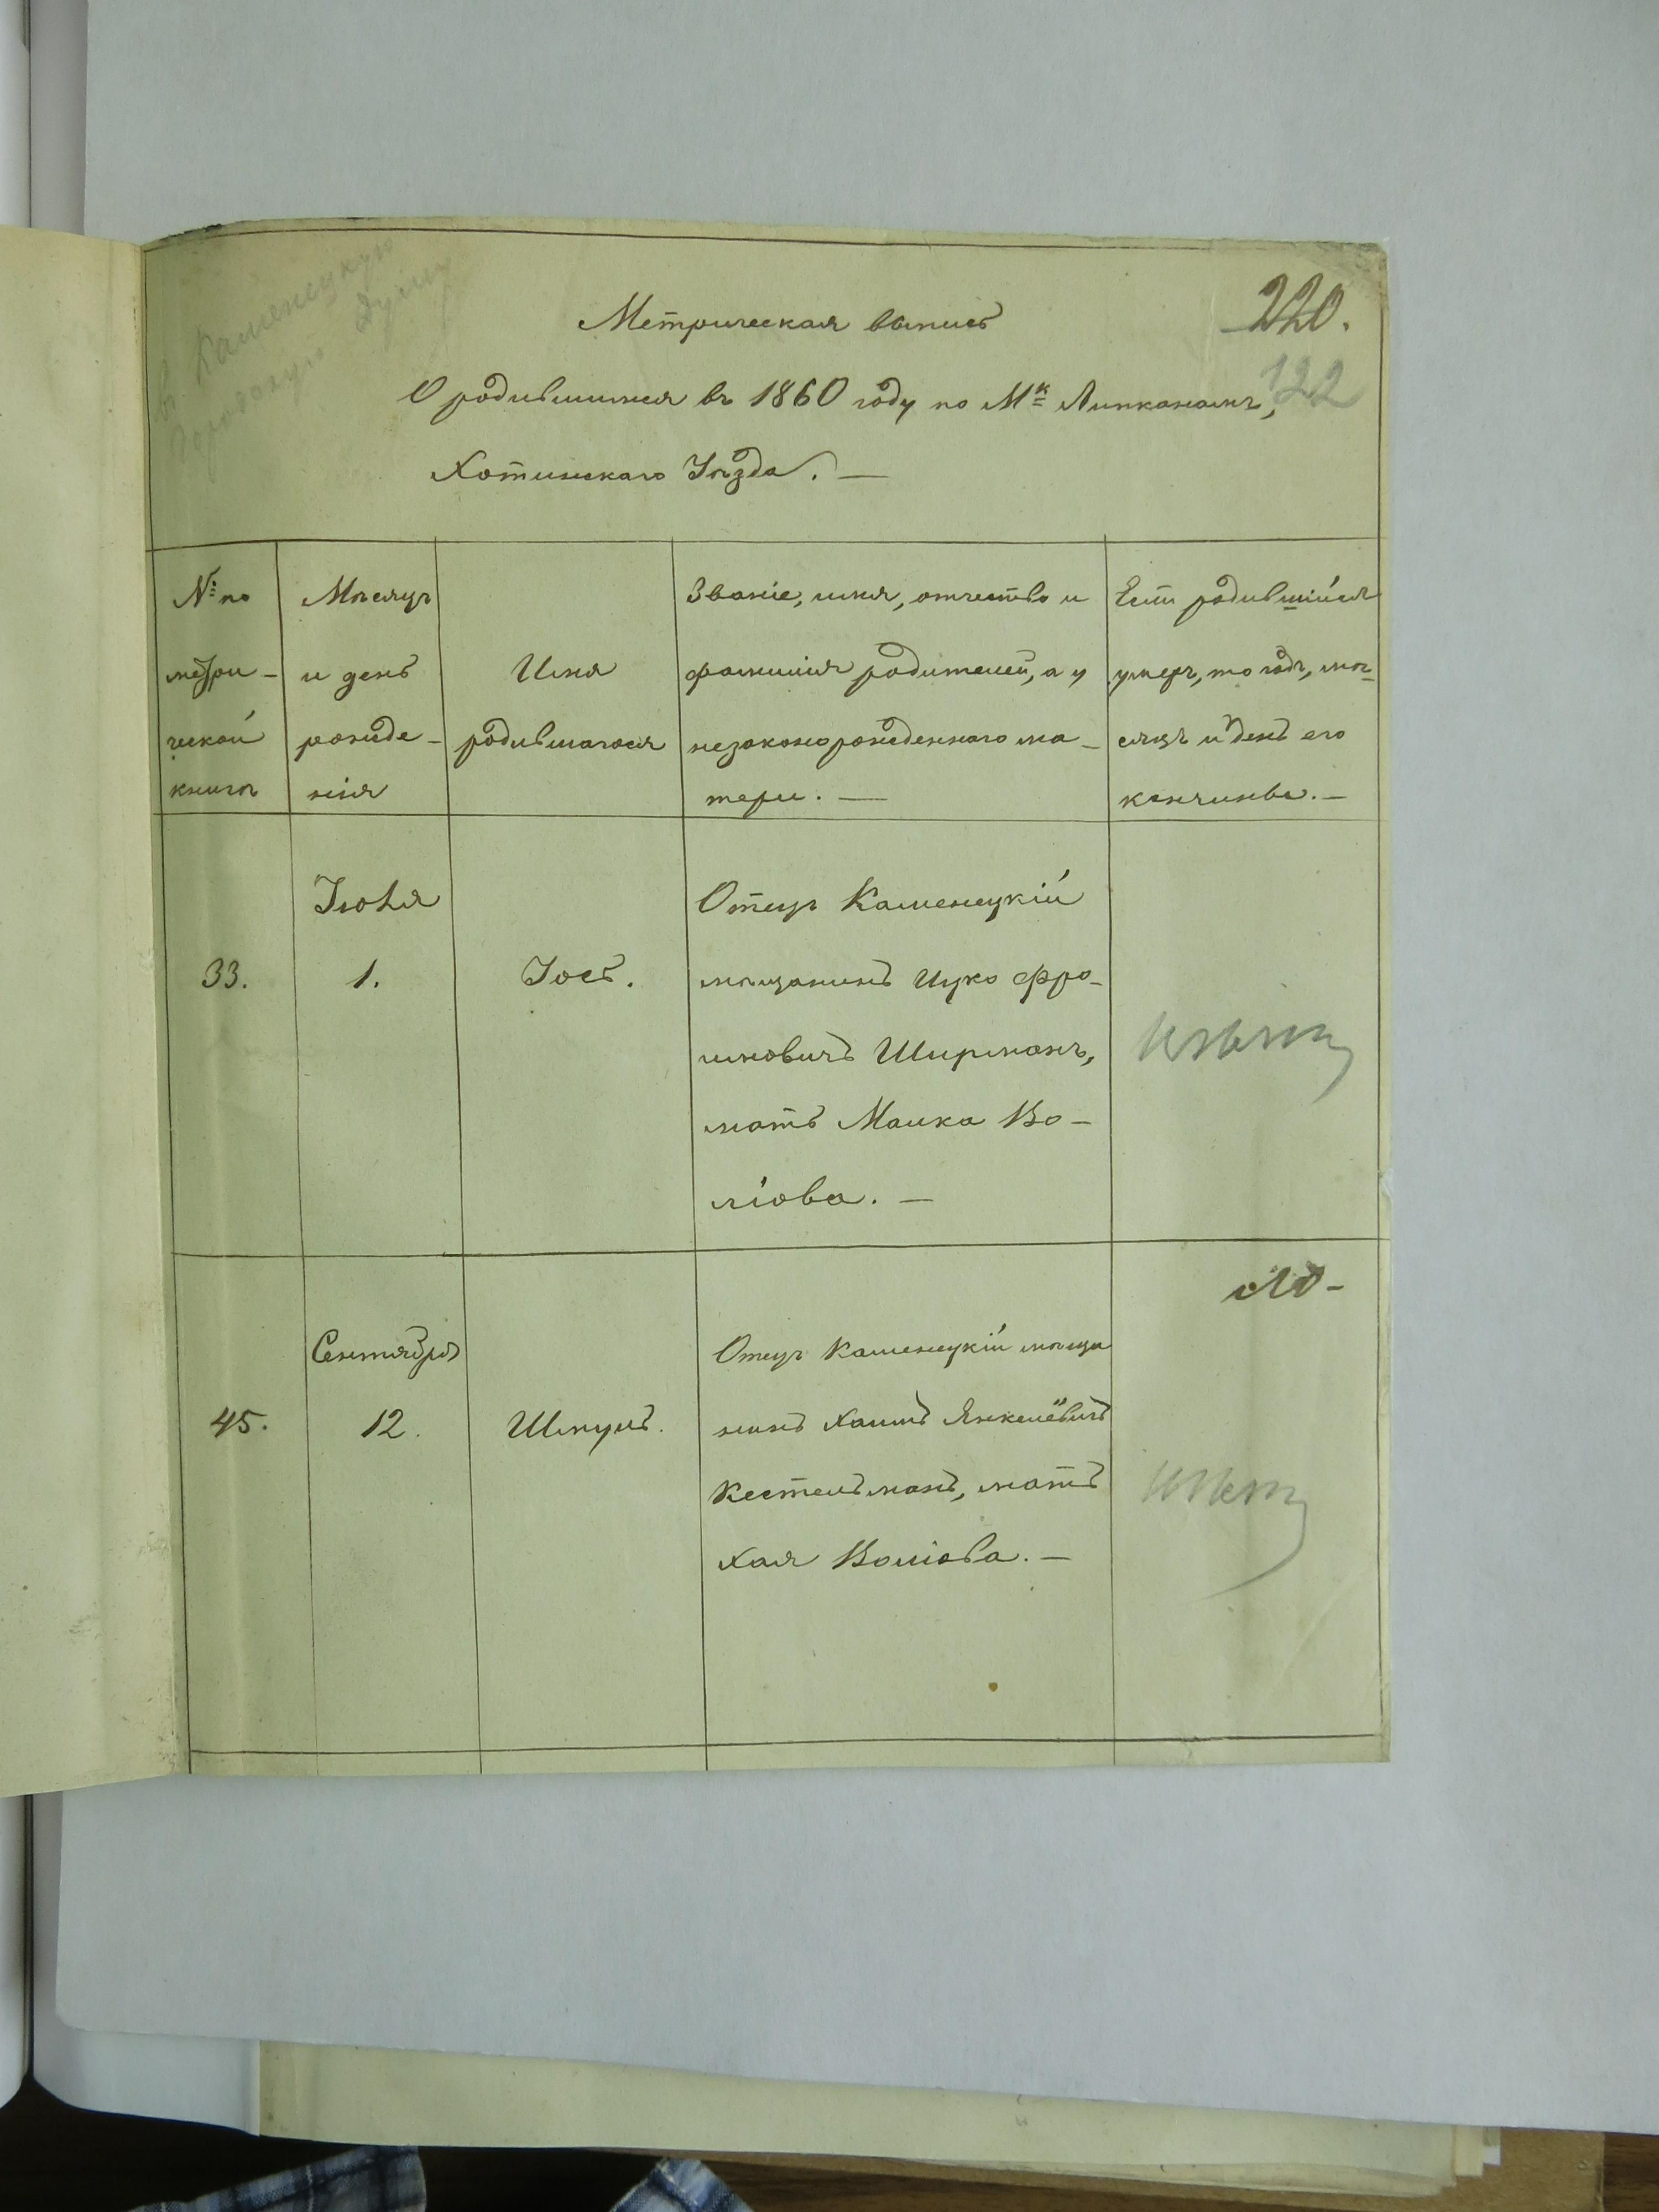 въ Каменецкую
Городскую Думу
220.
122
Метрическая выпись
О родившихся въ 1860 году по Мк Липканамъ,
Хотинскаго Уѣзда. —
№ по
метри-
ческой
книгѣ
Мѣсяцъ
и день
рожде-
нія
Имя
родившагося
Званіе, имя, отчество и
фамилія родителей, а у
незаконорожденнаго ма-
тери. —
Если родившійся
умеръ, то годъ, мѣ-
сяцъ и день его
кончины. —
33.
Іюля
1.
Іось.
Отецъ Каменецкій
мѣщанинъ Ицко Фро-
имовичъ Ширманъ,
мать Малка Во-
ліова. —
45.
Сентября
12.
Шмулъ.
Отецъ Каменецкій мѣща
нинъ Хаимъ Янкелёвичъ
Кестельманъ, мать
Хая Воліова. —